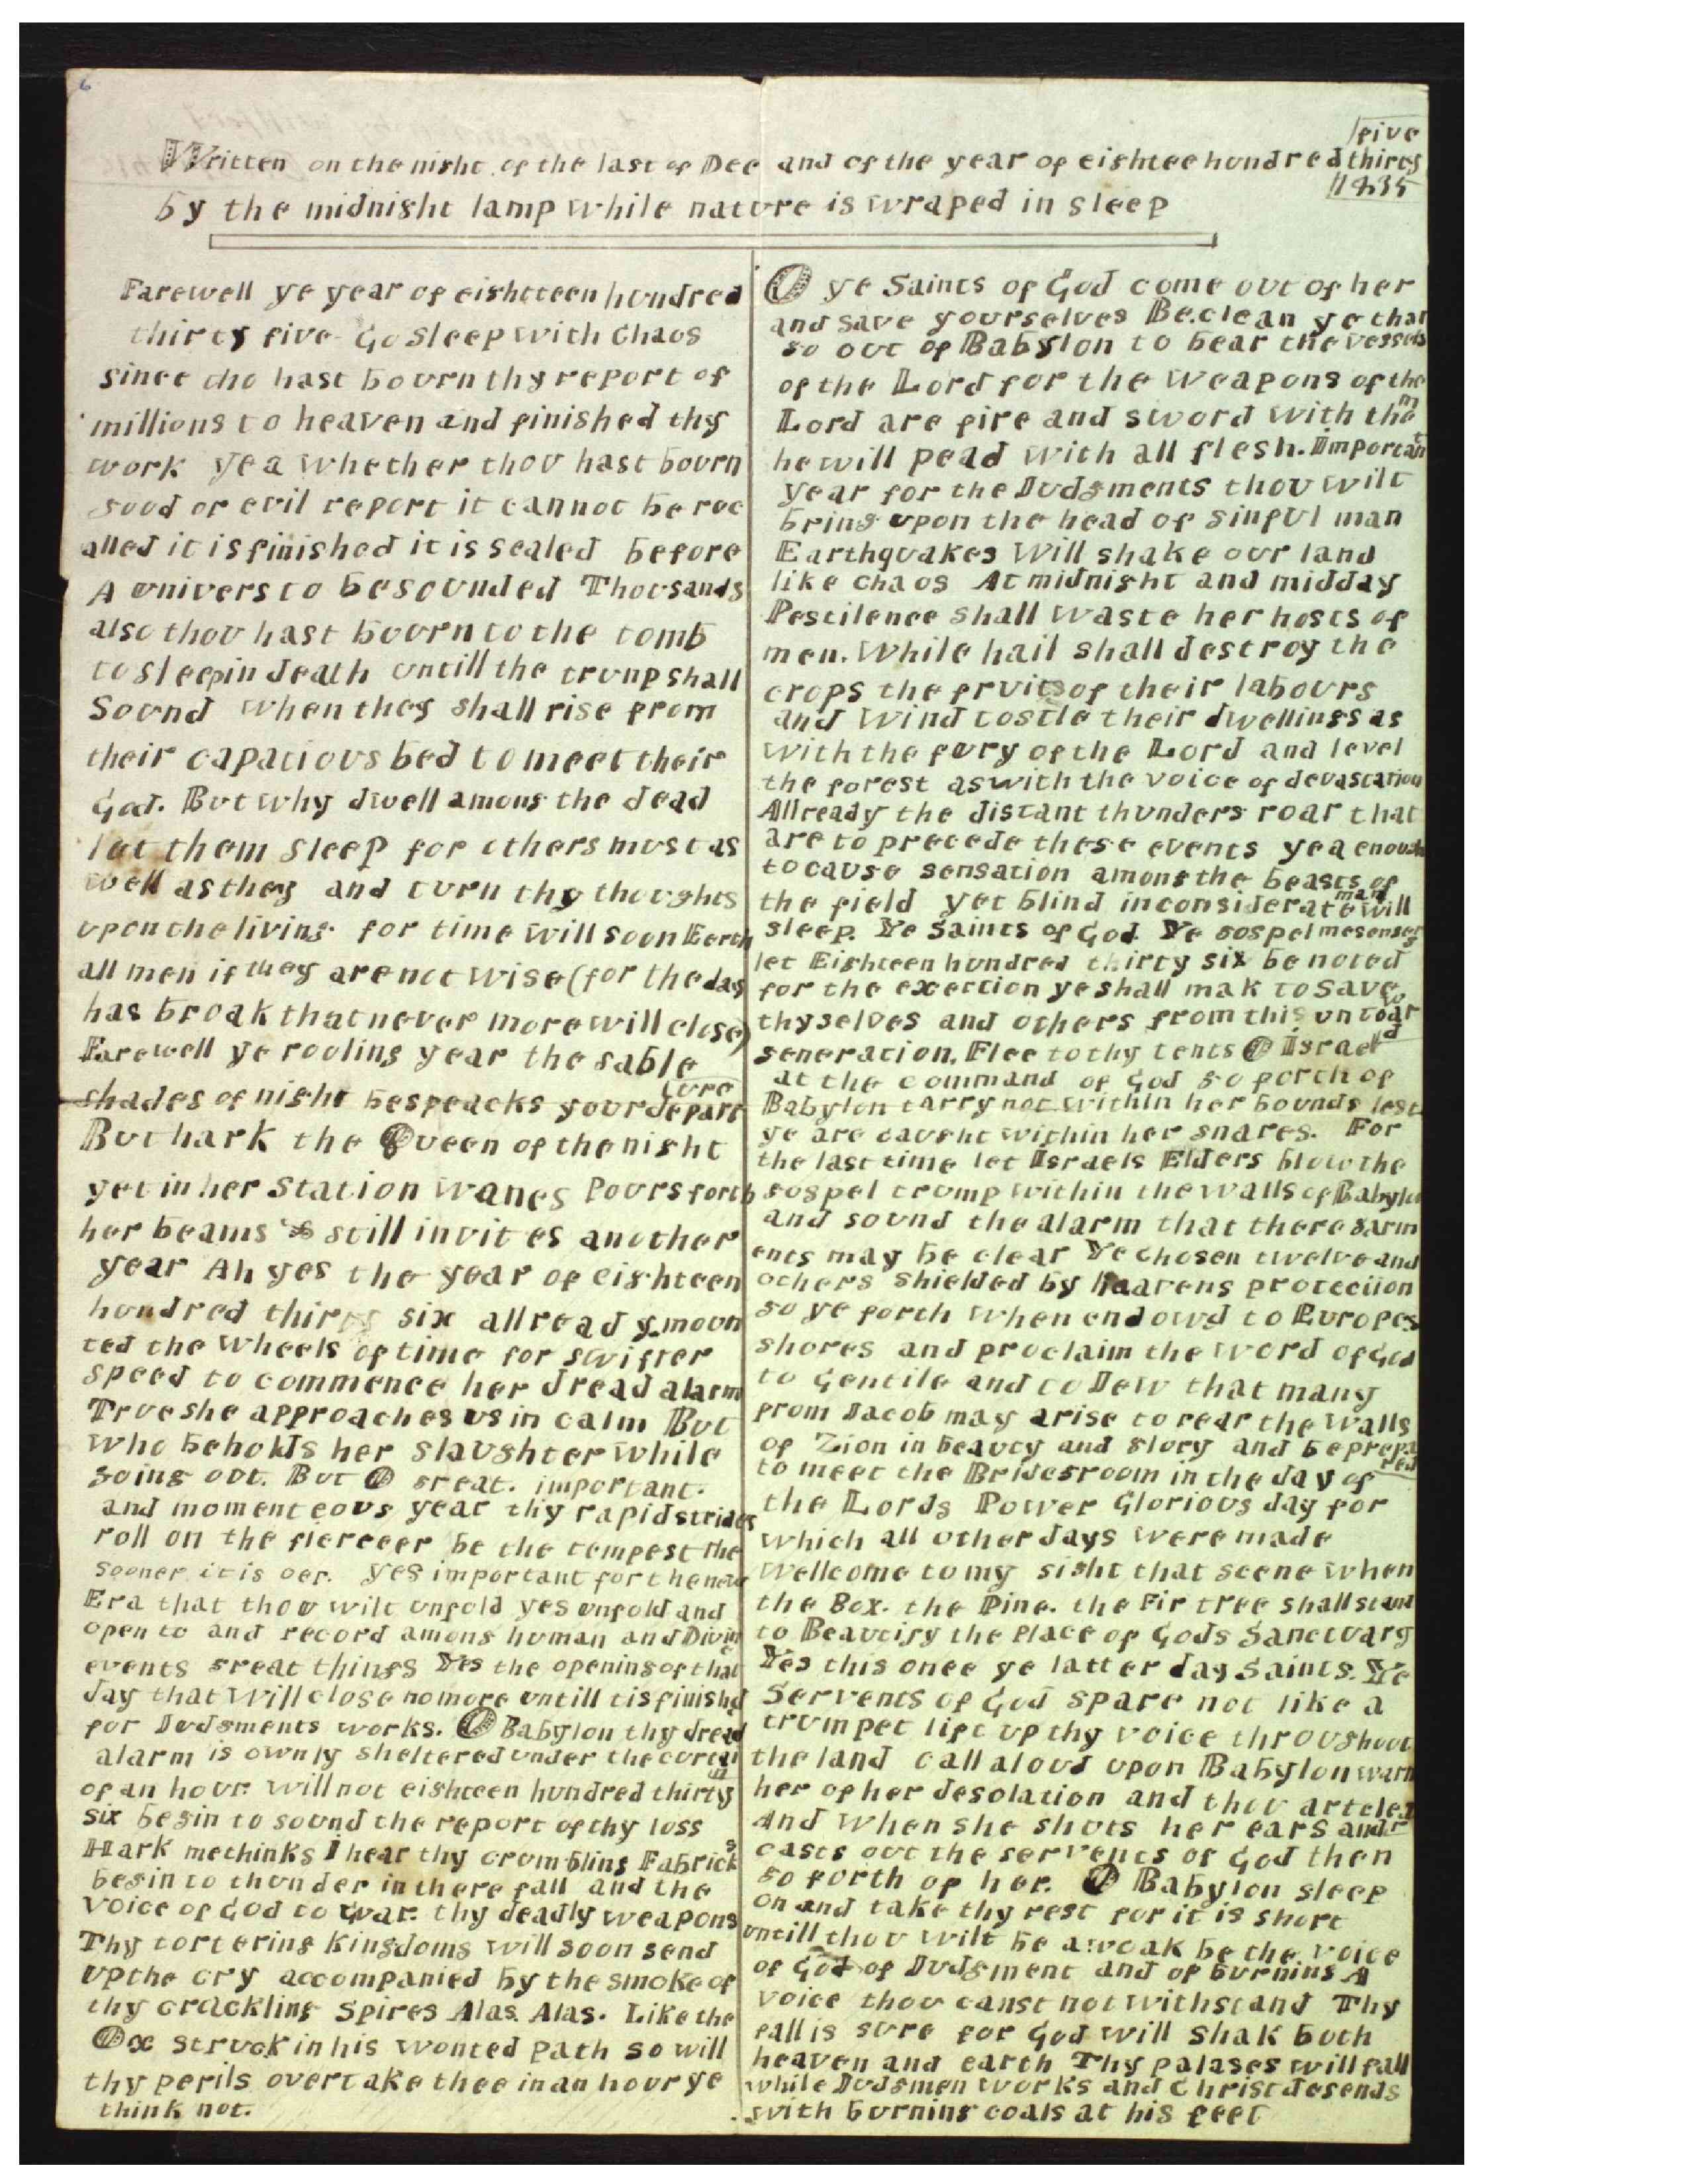 6
Written on the night of the last of Dec and of the year of eighteehundred thirty five
1835
by the midnight lamp while nature is wraped in sleep
Farewell ye year of eightteen hundred
thirty five Go sleep with Chaos
since tho hast bourn thy report of
millions to heaven and finished thy
work yea whether thou hast bourn
good or evil report it cannot be rec
alled it is finished it is sealed before
A univers to be sounded Thousands
also thou hast bourn to the tomb
to sleep in death untill the trump shall
Sound when they shall rise from
their capatious bed to meet their
God. But why dwell among the dead
let them sleep for others must as
well as they and turn thy thoughts
upon the living for time will soon Eerth
all men if they are not wise (for the day
has broak that never more will close)
Farewell ye rooling year the sable
shades of night bespeacks your departure
But hark the Queen of the night
yet in her station wanes Pours forth
her beams & still invites another
year Ah yes the year of eighteen
hundred thirty six allready moun
ted the wheels of time for swifter
speed to commence her dread alarm
True she approaches us in calm But
who beholds her slaughter while
going out. But O great. important.
and momenteous year thy rapid strides
roll on the fierceer be the tempest the
sooner it is oer. yes important for the new
Era that thou wilt unfold yes unfold and
open to and record among human and Divine
events great things Yes the opening of that
day that will close no more untill tis finishd
for Judgments works. O Babylon thy dread
alarm is ownly sheltered under the curtain
of an hour. will not eighteen hundred thirty
six begin to sound the report of thy loss
Hark methinks I hear thy crumbling Fabricks
begin to thunder in there fall and the
voice of God to war. thy deadly weapons
Thy tottering kingdoms will soon send
up the cry accompanied by the smoke of
thy crackling Spires Alas. Alas. Like the
Ox struck in his wonted path so will
thy perils overtake thee in an hour ye
think not.
O ye Saints of God come out of her
and save yourselves Be clean ye that
go out of Babylon to bear the vessels
of the Lord for the weapons of the
Lord are fire and sword with them
he will pead with all flesh. Important
year for the Judgments thou wilt
bring upon the head of sinful man
Earthquakes Will shake our land
like chaos At midnight and midday
Pestilence shall waste her hosts of
men. While hail shall destroy the
crops the fruits of their labours
and Wind tostle their dwellings as
with the fury of the Lord and level
the forest as with the voice of devastation
Allready the distant thunders roar that
are to precede these events yea enough
to cause sensation among the beasts of
the field yet blind inconsiderate man will
sleep. Ye Saints of God Ye gospel mesengers
let Eighteen hundred thirty six be noted
for the exertion ye shall mak to save
thyselves and others from this untoward
generation. Flee to thy tents O Israel
at the command of God go forth of
Babylon tarry not within her bounds lest
ye are caught within her snares. For
the last time let Israels Elders blow the
gospel trump within the walls of Babylon
and sound the alarm that there garm
ents may be clear Ye chosen twelve and
others shielded by heavens protection
go ye forth when endowd to Europes
shores and proclaim the word of God
to Gentile and to Jew that many
from Jacob may arise to rear the walls
of Zion in beauty and glory and be prepared
to meet the Bridegroom in the day of
the Lords Power Glorious day for
which all other days were made
Wellcome to my sight that scene when
the Box. the Pine. the Fir tree shall stand
to Beautify the Place of Gods Sanctuary
Yes this once ye latter day Saints. Ye
Servents of God spare not like a
trumpet lift up thy voice throughout
the land call aloud upon Babylon warn
her of her desolation and thou art clear
And when she shuts her ears and
casts out the servents of God then
go forth of her. O Babylon sleep
on and take thy rest for it is short
untill thou wilt be awoak be the voice
of God of Judgment and of burning A
voice thou canst not withstand Thy
fall is sure for God will shak both
heaven and earth Thy palases will fall
while Judgmen works and Christ desends
with burning coals at his feet